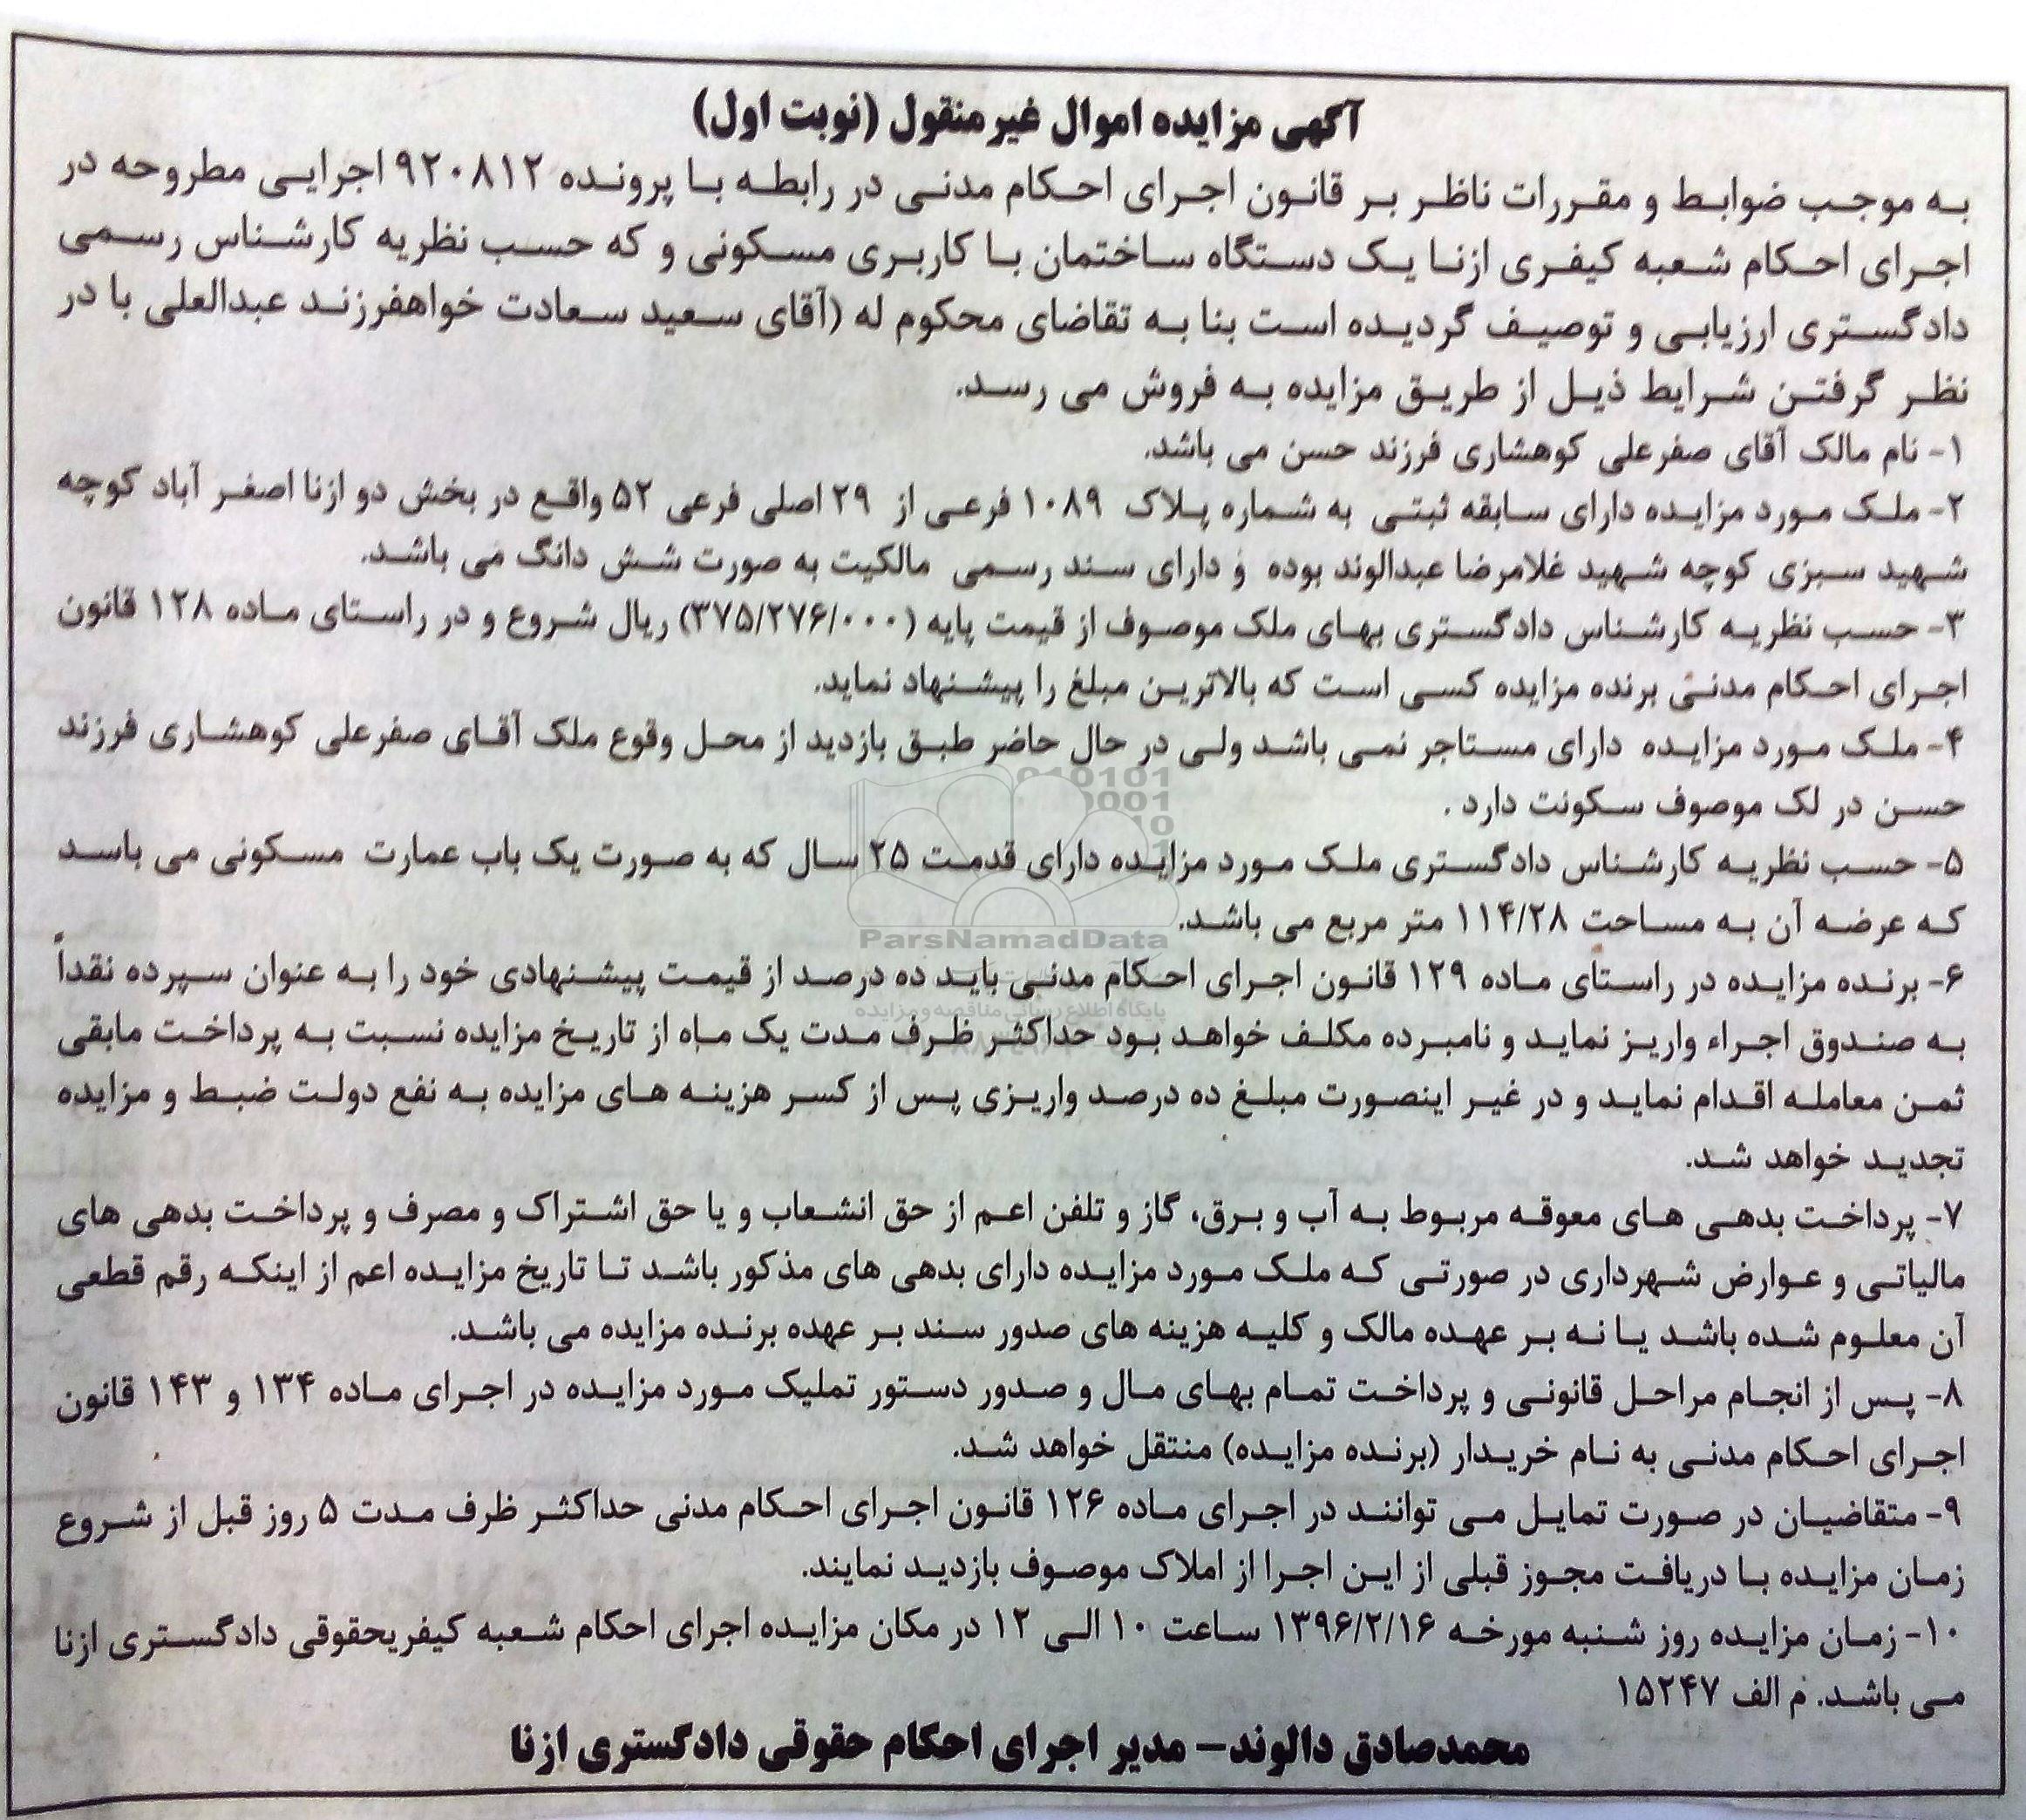 آگهی مزایده اموال غیرمنقول (نوبت اول)
به موجب ضوابط و مقررات ناظر بر قانون اجرای احکام مدنی در رابطه با پرونده ۹۲۰۸۱۲ اجرایی مطروحه در
اجرای احکام شعبه کیفری ازنا یک دستگاه ساختمان با کاربری مسکونی و که حسب نظریه کارشناس رسمی
دادگستری ارزیابی و توصیف گردیده است بنا به تقاضای محکوم له (آقای سعید سعادت خواهفرزند عبدالعلی با در
نظر گرفتن شرایط ذیل از طریق مزایده به فروش می رسد.
۱- نام مالک آقای صفرعلی کوهشاری فرزند حسن می باشد.
۲- ملک مورد مزایده دارای سابقه ثبتی به شماره پلاک ۱۰۸۹ فرعی از ۲۹ اصلی فرعی ۵۲ واقع در بخش دو ازنا اصغر آباد کوچه
شهید سبزی کوچه شهید غلامرضا عبدالوند بوده و دارای سند رسمی مالکیت به صورت شش دانگ می باشد.
۳- حسب نظریه کارشناس دادگستری بهای ملک موصوف از قیمت پایه (۳۷۵/۲۷۶/۰۰۰) ریال شروع و در راستای ماده ۱۲۸ قانون
اجرای احکام مدنی برنده مزایده کسی است که بالاترین مبلغ را پیشنهاد نماید.
۴- ملک مورد مزایده دارای مستاجر نمی باشد ولی در حال حاضر طبق بازدید از محل وقوع ملک آقای صفرعلی کوهشاری فرزند
حسن در لک موصوف سکونت دارد .
۵- حسب نظریه کارشناس دادگستری ملک مورد مزایده دارای قدمت ۲۵ سال که به صورت یک باب عمارت مسکونی می باسد
که عرضه آن به مساحت ۱۱۴/۲۸ متر مربع می باشد.
ParsNamadData
۶- برنده مزایده در راستای ماده ۱۲۹ قانون اجرای احکام مدنی باید ده درصد از قیمت پیشنهادی خود را به عنوان سپرده نقداً
پایگاه اطلاع رسانی مناقصه و مزایده
به صندوق اجراء واریز نماید و نامبرده مکلف خواهد بود حداکثر ظرف مدت یک ماه از تاریخ مزایده نسبت به پرداخت مابقی
ثمن معامله اقدام نماید و در غیر اینصورت مبلغ ده درصد واریزی پس از کسر هزینه های مزایده به نفع دولت ضبط و مزایده
تجدید خواهد شد.
۷- پرداخت بدهی های معوقه مربوط به آب و برق، گاز و تلفن اعم از حق انشعاب و یا حق اشتراک و مصرف و پرداخت بدهی های
مالیاتی و عوارض شهرداری در صورتی که ملک مورد مزایده دارای بدهی های مذکور باشد تا تاریخ مزایده اعم از اینکه رقم قطعی
آن معلوم شده باشد یا نه بر عهده مالک و کلیه هزینه های صدور سند بر عهده برنده مزایده می باشد.
۸- پس از انجام مراحل قانونی و پرداخت تمام بهای مال و صدور دستور تملیک مورد مزایده در اجرای ماده ۱۳۴ و ۱۴۳ قانون
اجرای احکام مدنی به نام خریدار (برنده مزایده) منتقل خواهد شد.
۹- متقاضیان در صورت تمایل می توانند در اجرای ماده ۱۲۶ قانون اجرای احکام مدنی حداکثر ظرف مدت ۵ روز قبل از شروع
زمان مزایده با دریافت مجوز قبلی از این اجرا از املاک موصوف بازدید نمایند.
۱۰- زمان مزایده روز شنبه مورخه ۱۳۹۶/۲/۱۶ ساعت ۱۰ الی ۱۲ در مکان مزایده اجرای احکام شعبه کیفریحقوقی دادگستری ازنا
می باشد. م الف ۱۵۲۴۷
محمدصادق دالوند- مدیر اجرای احکام حقوقی دادگستری ازنا